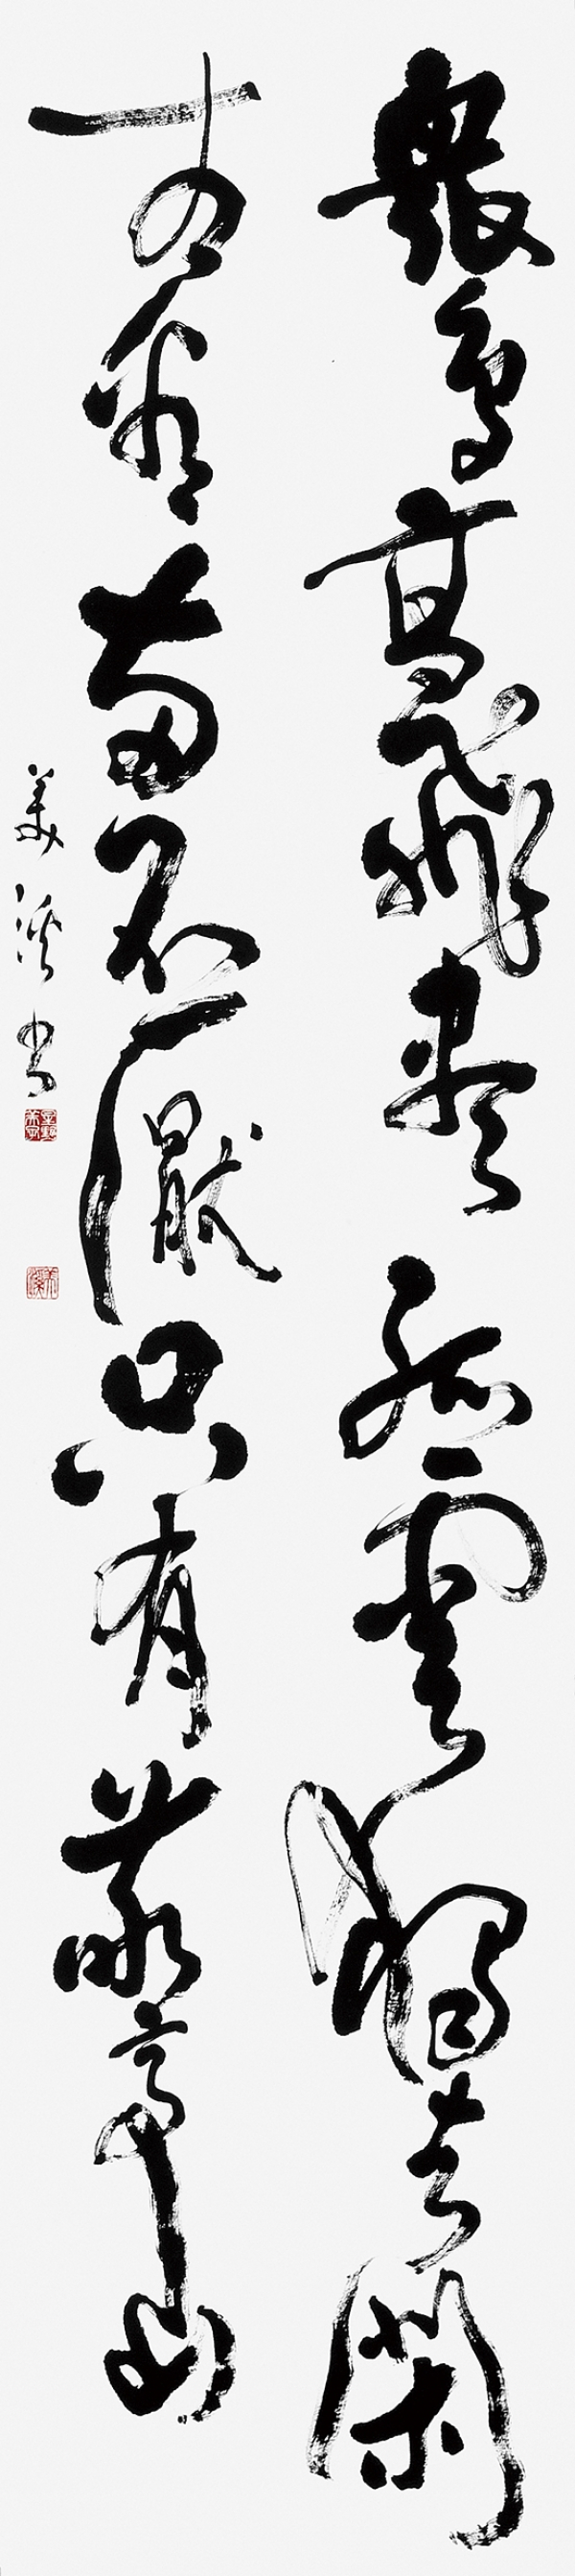 衆鳥高飛盡孤雲獨去閑
相看兩不厭只有敬亭山
美溪書